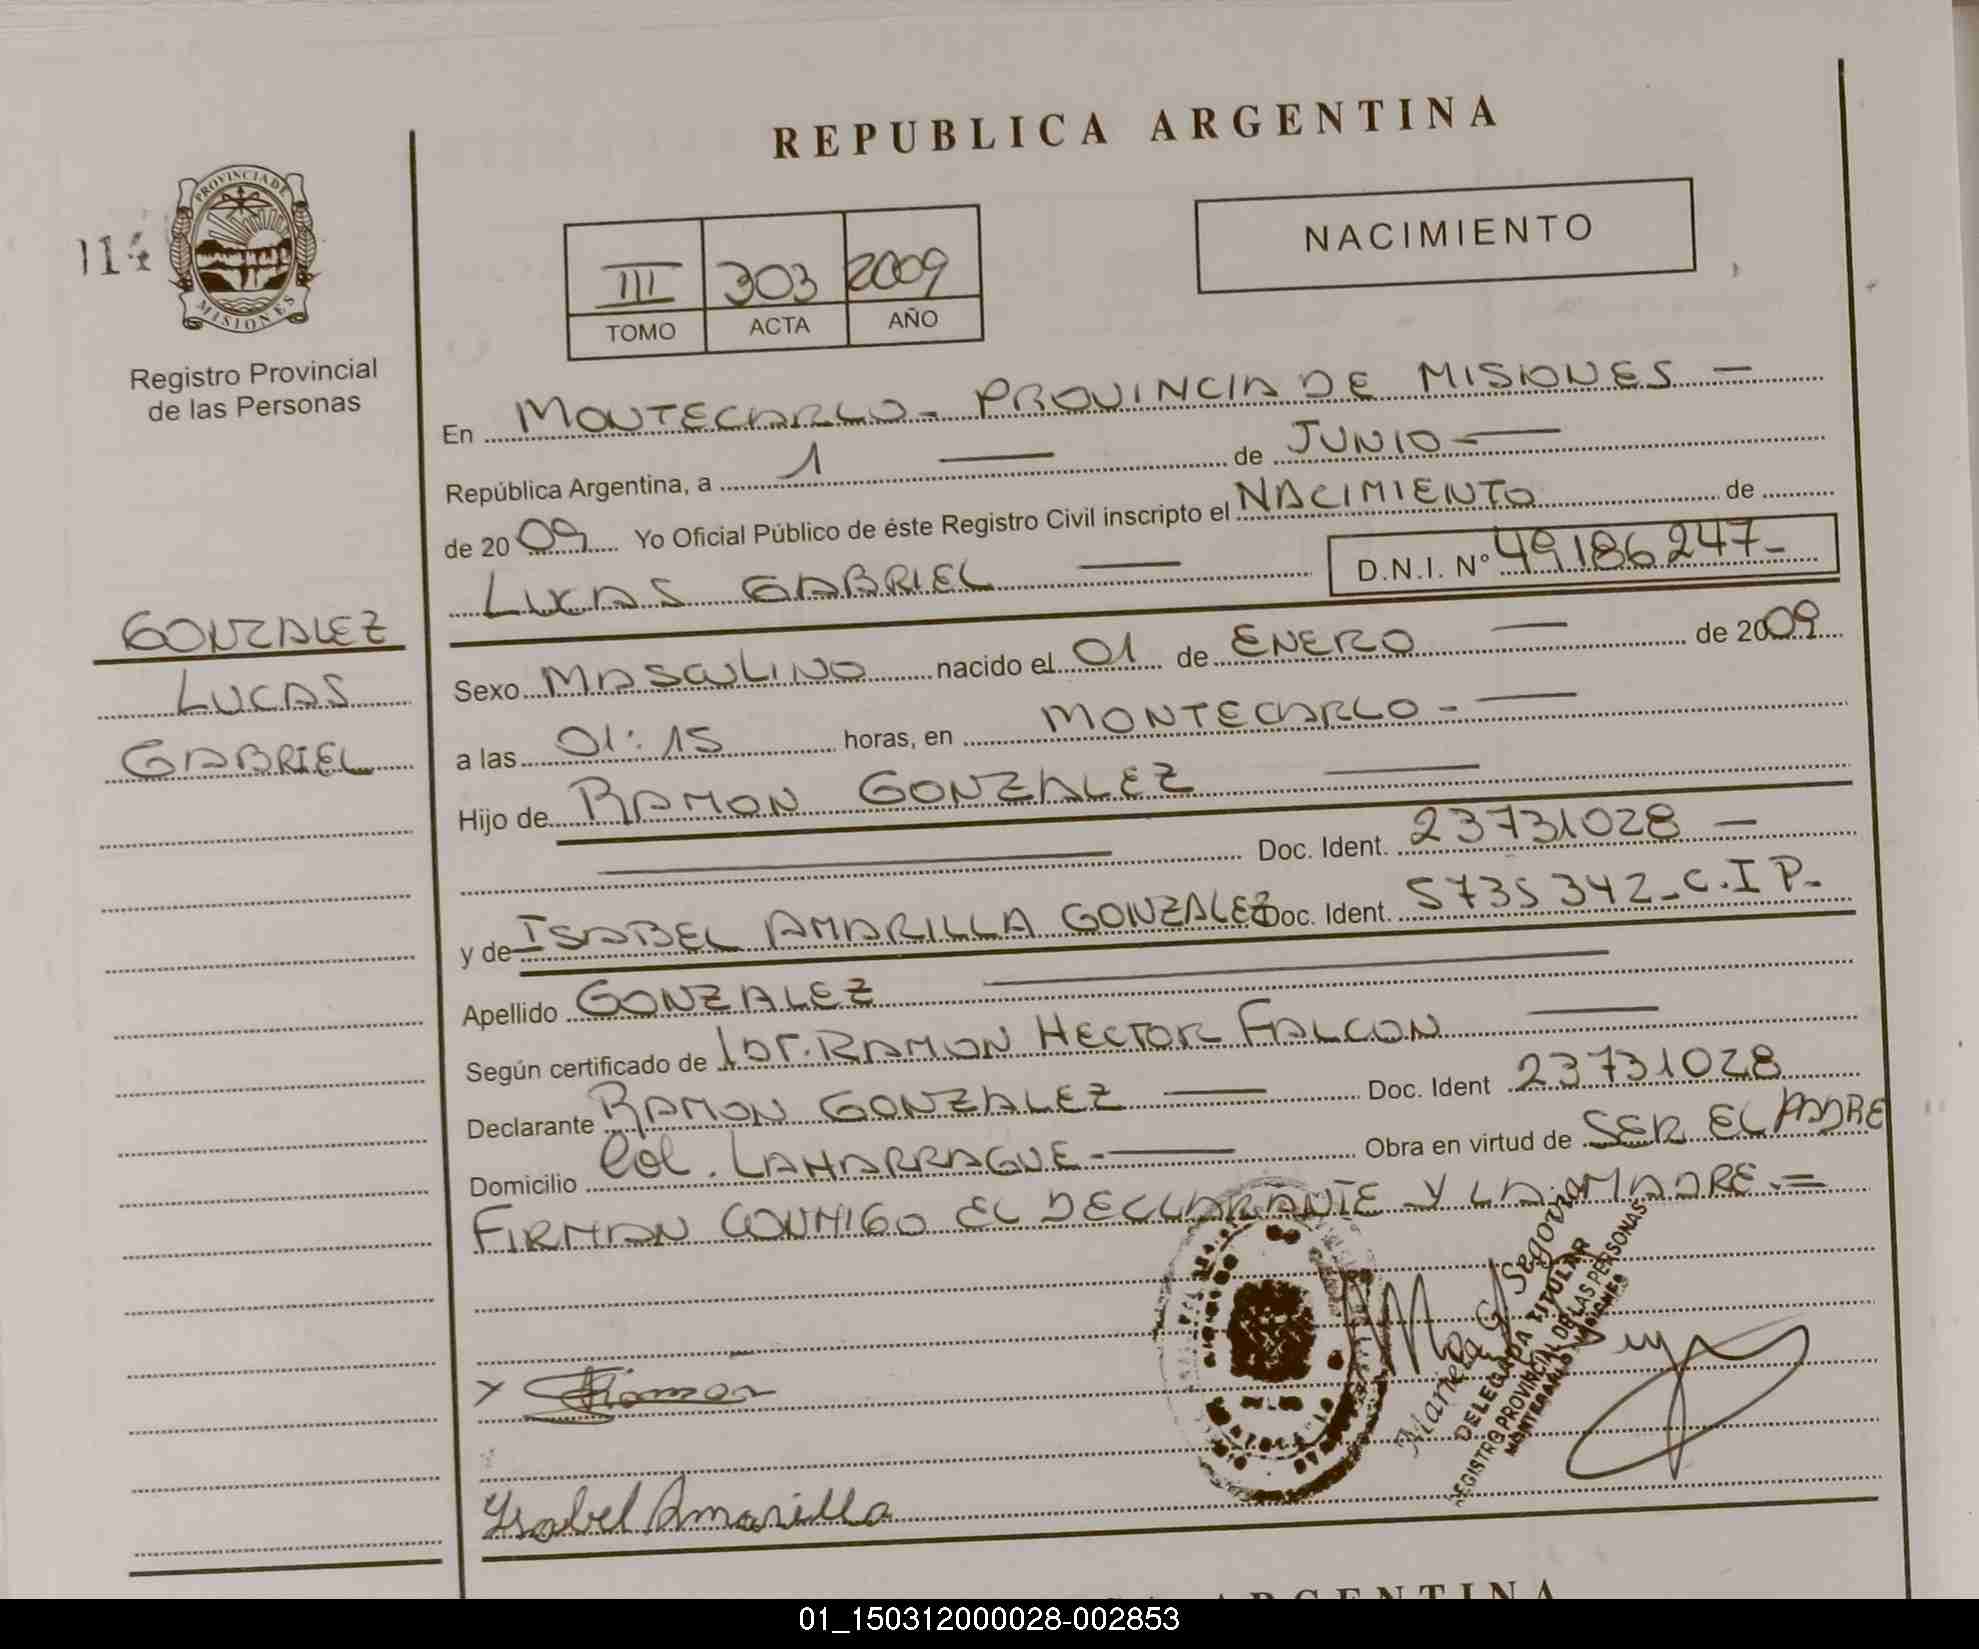 REPUBLICA ARGENTINA
NACIMIENTO
114
PROVINCIA DE
MISIONES
III 303 2009
TOMO ACTA AÑO
Registro Provincial
de las Personas
En MONTECARLO - PROVINCIA DE MISIONES —
República Argentina, a 1 — de JUNIO —
de 2009 Yo Oficial Público de éste Registro Civil inscripto el NACIMIENTO de
LUCAS GABRIEL — D.N.I. Nº 49186247-
GONZALEZ
LUCAS
GABRIEL
Sexo MASCULINO nacido el 01 de ENERO — de 2009
a las 01:15 horas, en MONTECARLO - —
Hijo de RAMON GONZALEZ —
— Doc. Ident. 23731028 —
y de ISABEL AMARILLA GONZALEZ Doc. Ident. 5735342-C.I P-
Apellido GONZALEZ —
Según certificado de RAMON HECTOR FALCON —
Declarante RAMON GONZALEZ — Doc. Ident 23731028
Domicilio Col. LAHARRAGUE - — Obra en virtud de SER EL PADRE
FIRMAN CONMIGO EL DECLARANTE Y LA MADRE.=
Mariela G. Segovia
DELEGADA TITULAR
REGISTRO PROVINCIAL DE LAS PERSONAS
MONTECARLO MISIONES
Ysabel Amarilla
ARGENTINA
01_150312000028-002853